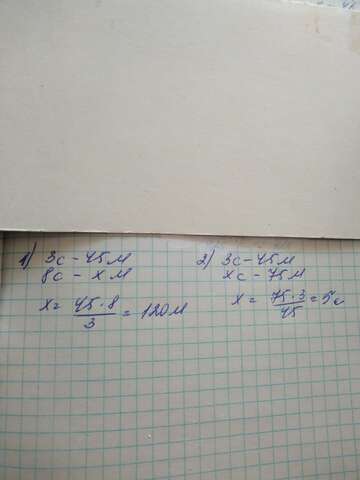 1) 3с - 45м
8с - х м
х = 45 · 8 / 3 = 120м
2) 3с - 45м
хс - 75м
х = 75 · 3 / 45 = 5с